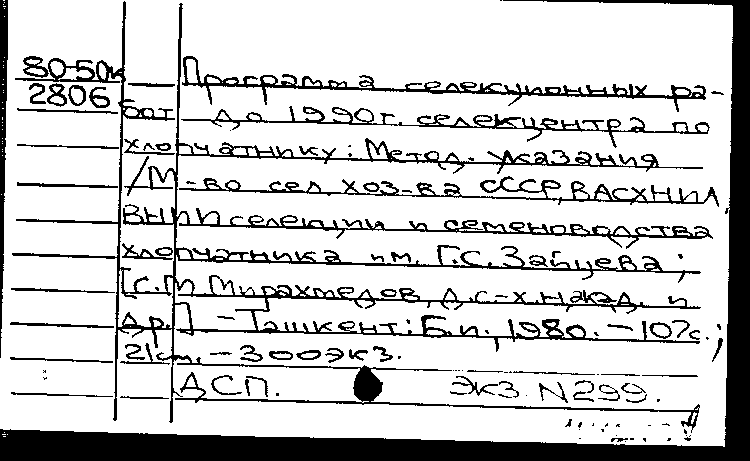 80-50к Программа селекционных ра-
2806 бот до 1990г. селекцентра по
хлопчатнику: Метод. указания
/М-во сел. хоз-ва СССР, ВАСХНИЛ,
ВНИИ селекции и семеноводства
хлопчатника им. Г.С. Зайцева;
[С.М Мирахмедов, д.с-х.н, акад. и
др.] - Ташкент: Б.и., 1980. - 107с.;
21см. - 300экз.
ДСП. экз. N299.